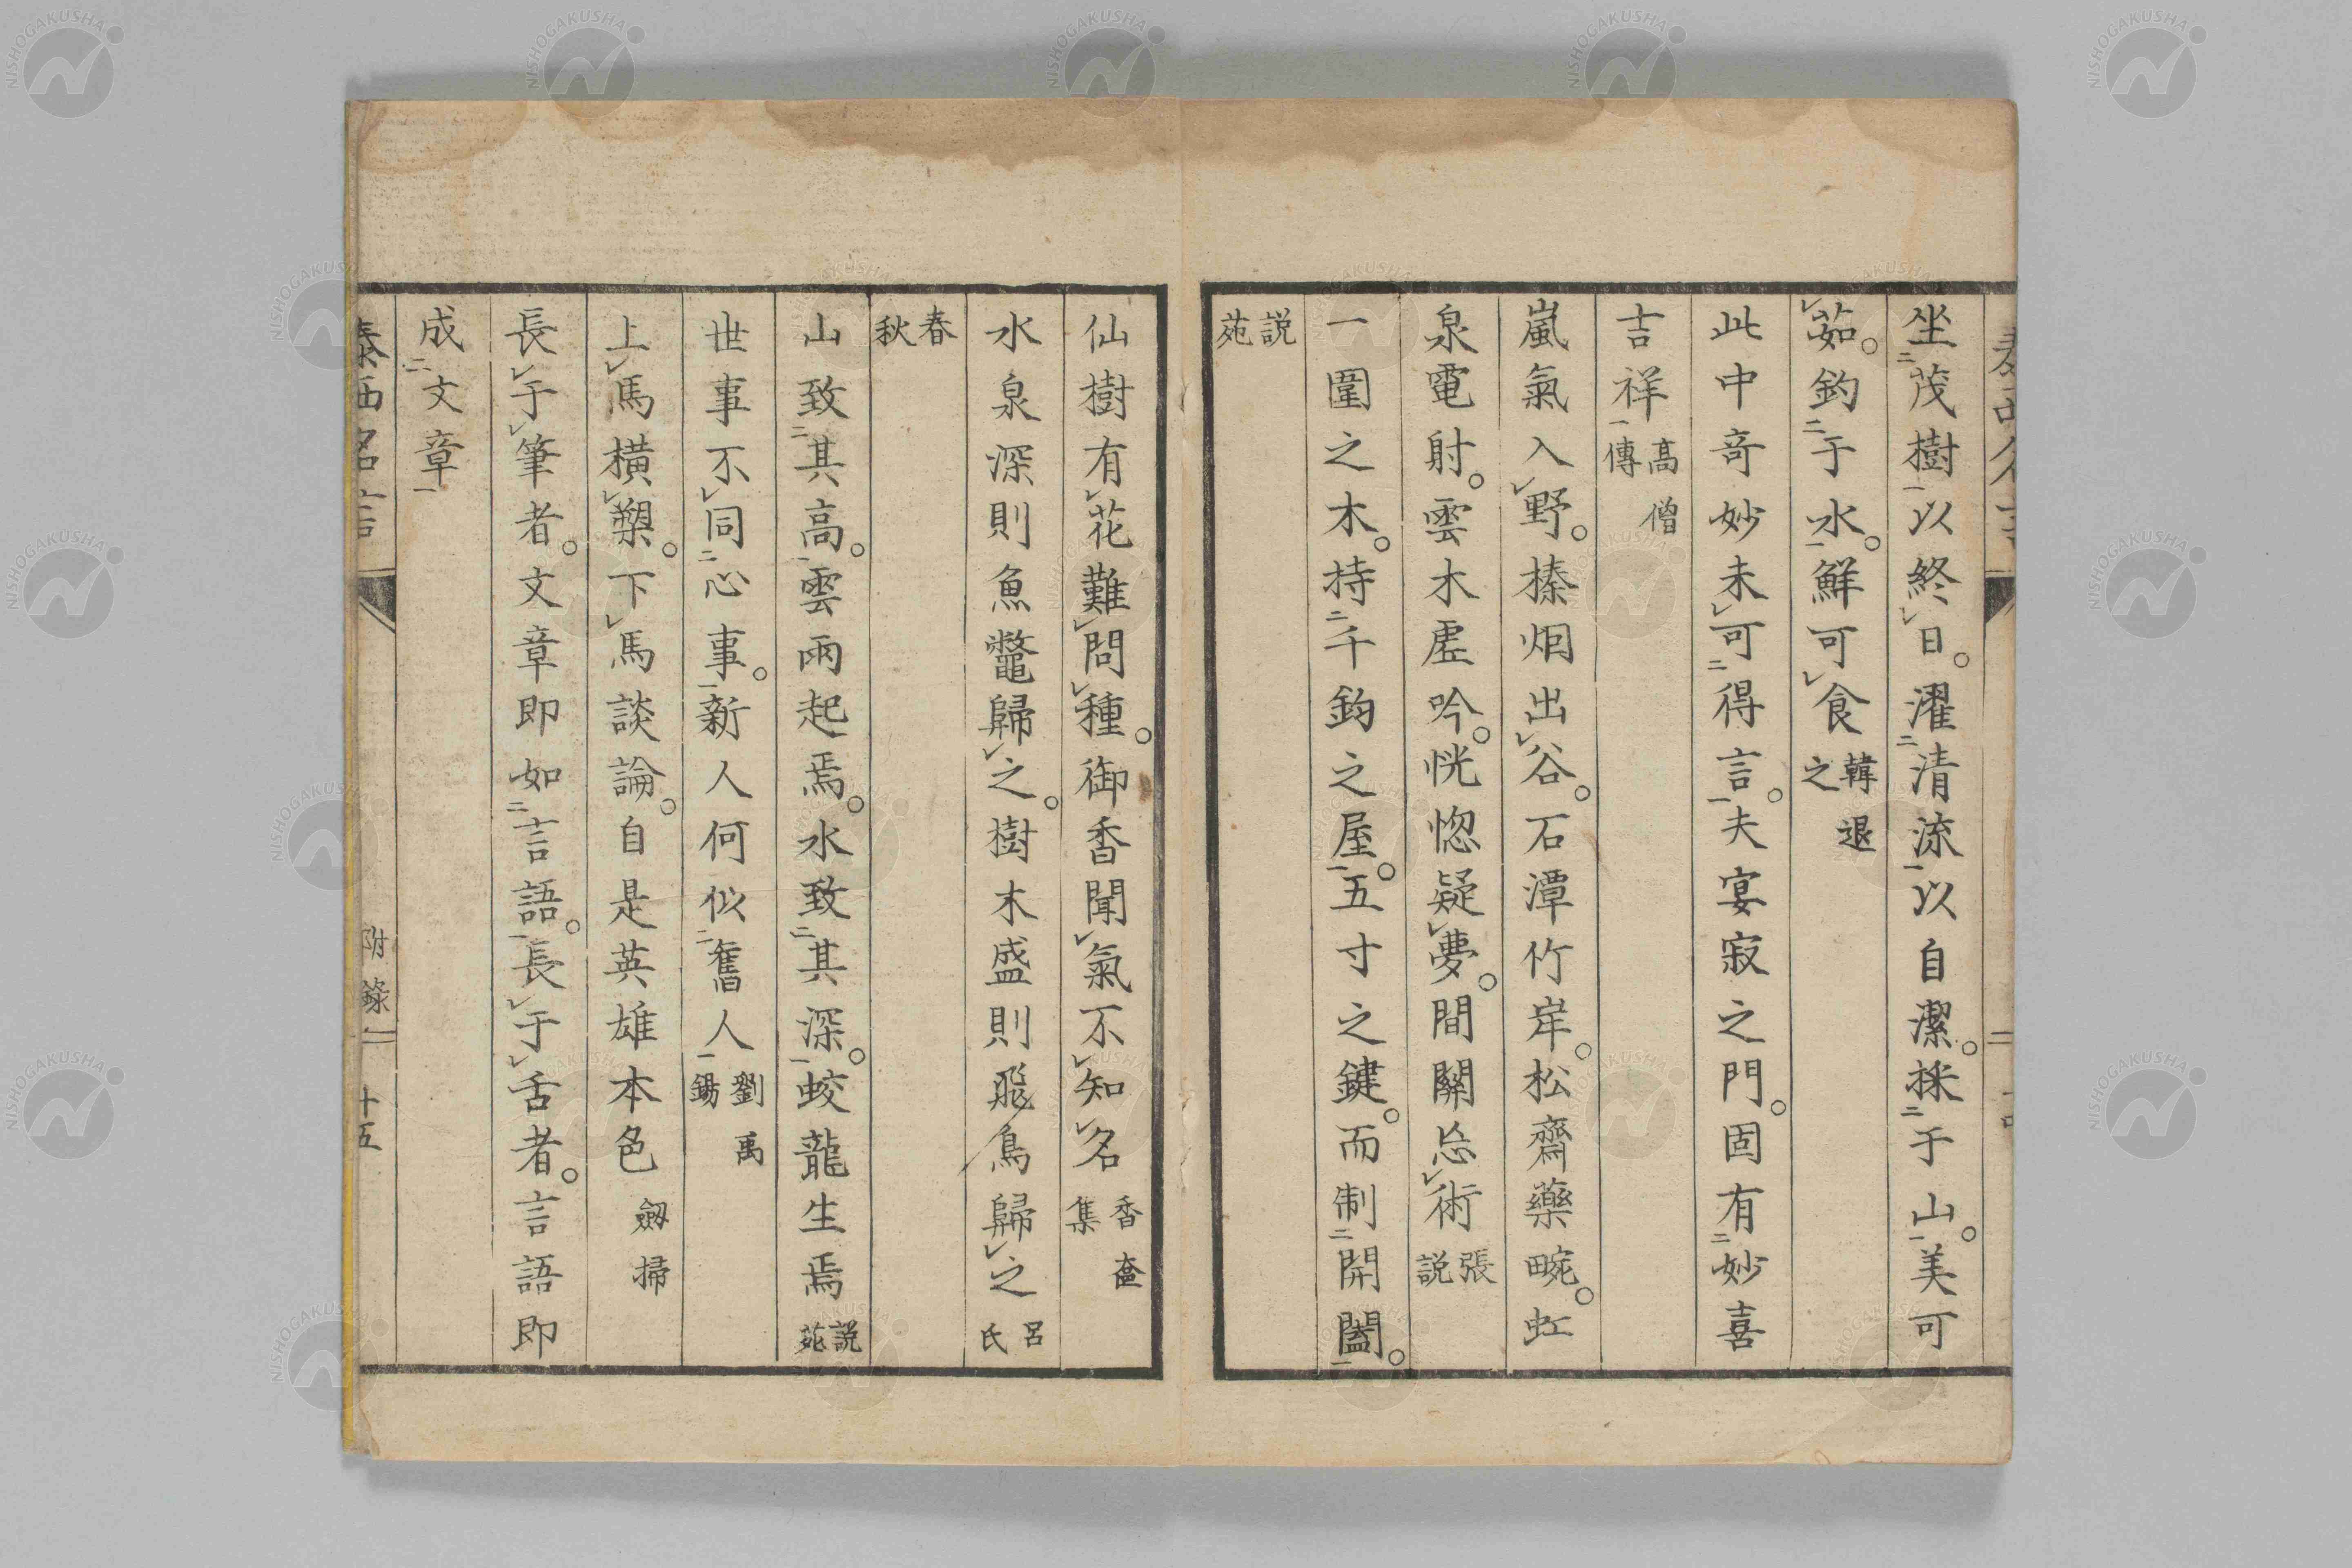 坐茂樹以終日。濯清流以自潔。採于山。美可
茹。釣于水。鮮可食 韓退之
此中奇妙未可得言。夫宴寂之門。固有妙喜
吉祥 高僧傳
嵐氣入野。榛烟出谷。石潭竹岸。松齋藥畹。虹
泉電射。雲木虛吟。恍惚疑夢。間關忘術 張説
一圍之木。持千鈞之屋。五寸之鍵。而制開闔。
説苑
仙樹有花難問種。御香聞氣不知名 香奩集
水泉深則魚鼈歸之。樹木盛則飛鳥歸之 呂氏
春秋
山致其高。雲雨起焉。水致其深。蛟龍生焉 説苑
世事不同心事。新人何似舊人 劉禹錫
上馬橫槊。下馬談論。自是英雄本色 劔掃
長于筆者。文章即如言語。長于舌者。言語即
成文章
泰西名言 附錄 十五
NISHOGAKUSHA